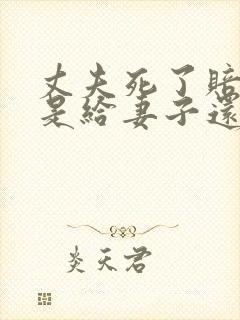 丈夫死了賠
是給妻子還
炎天君